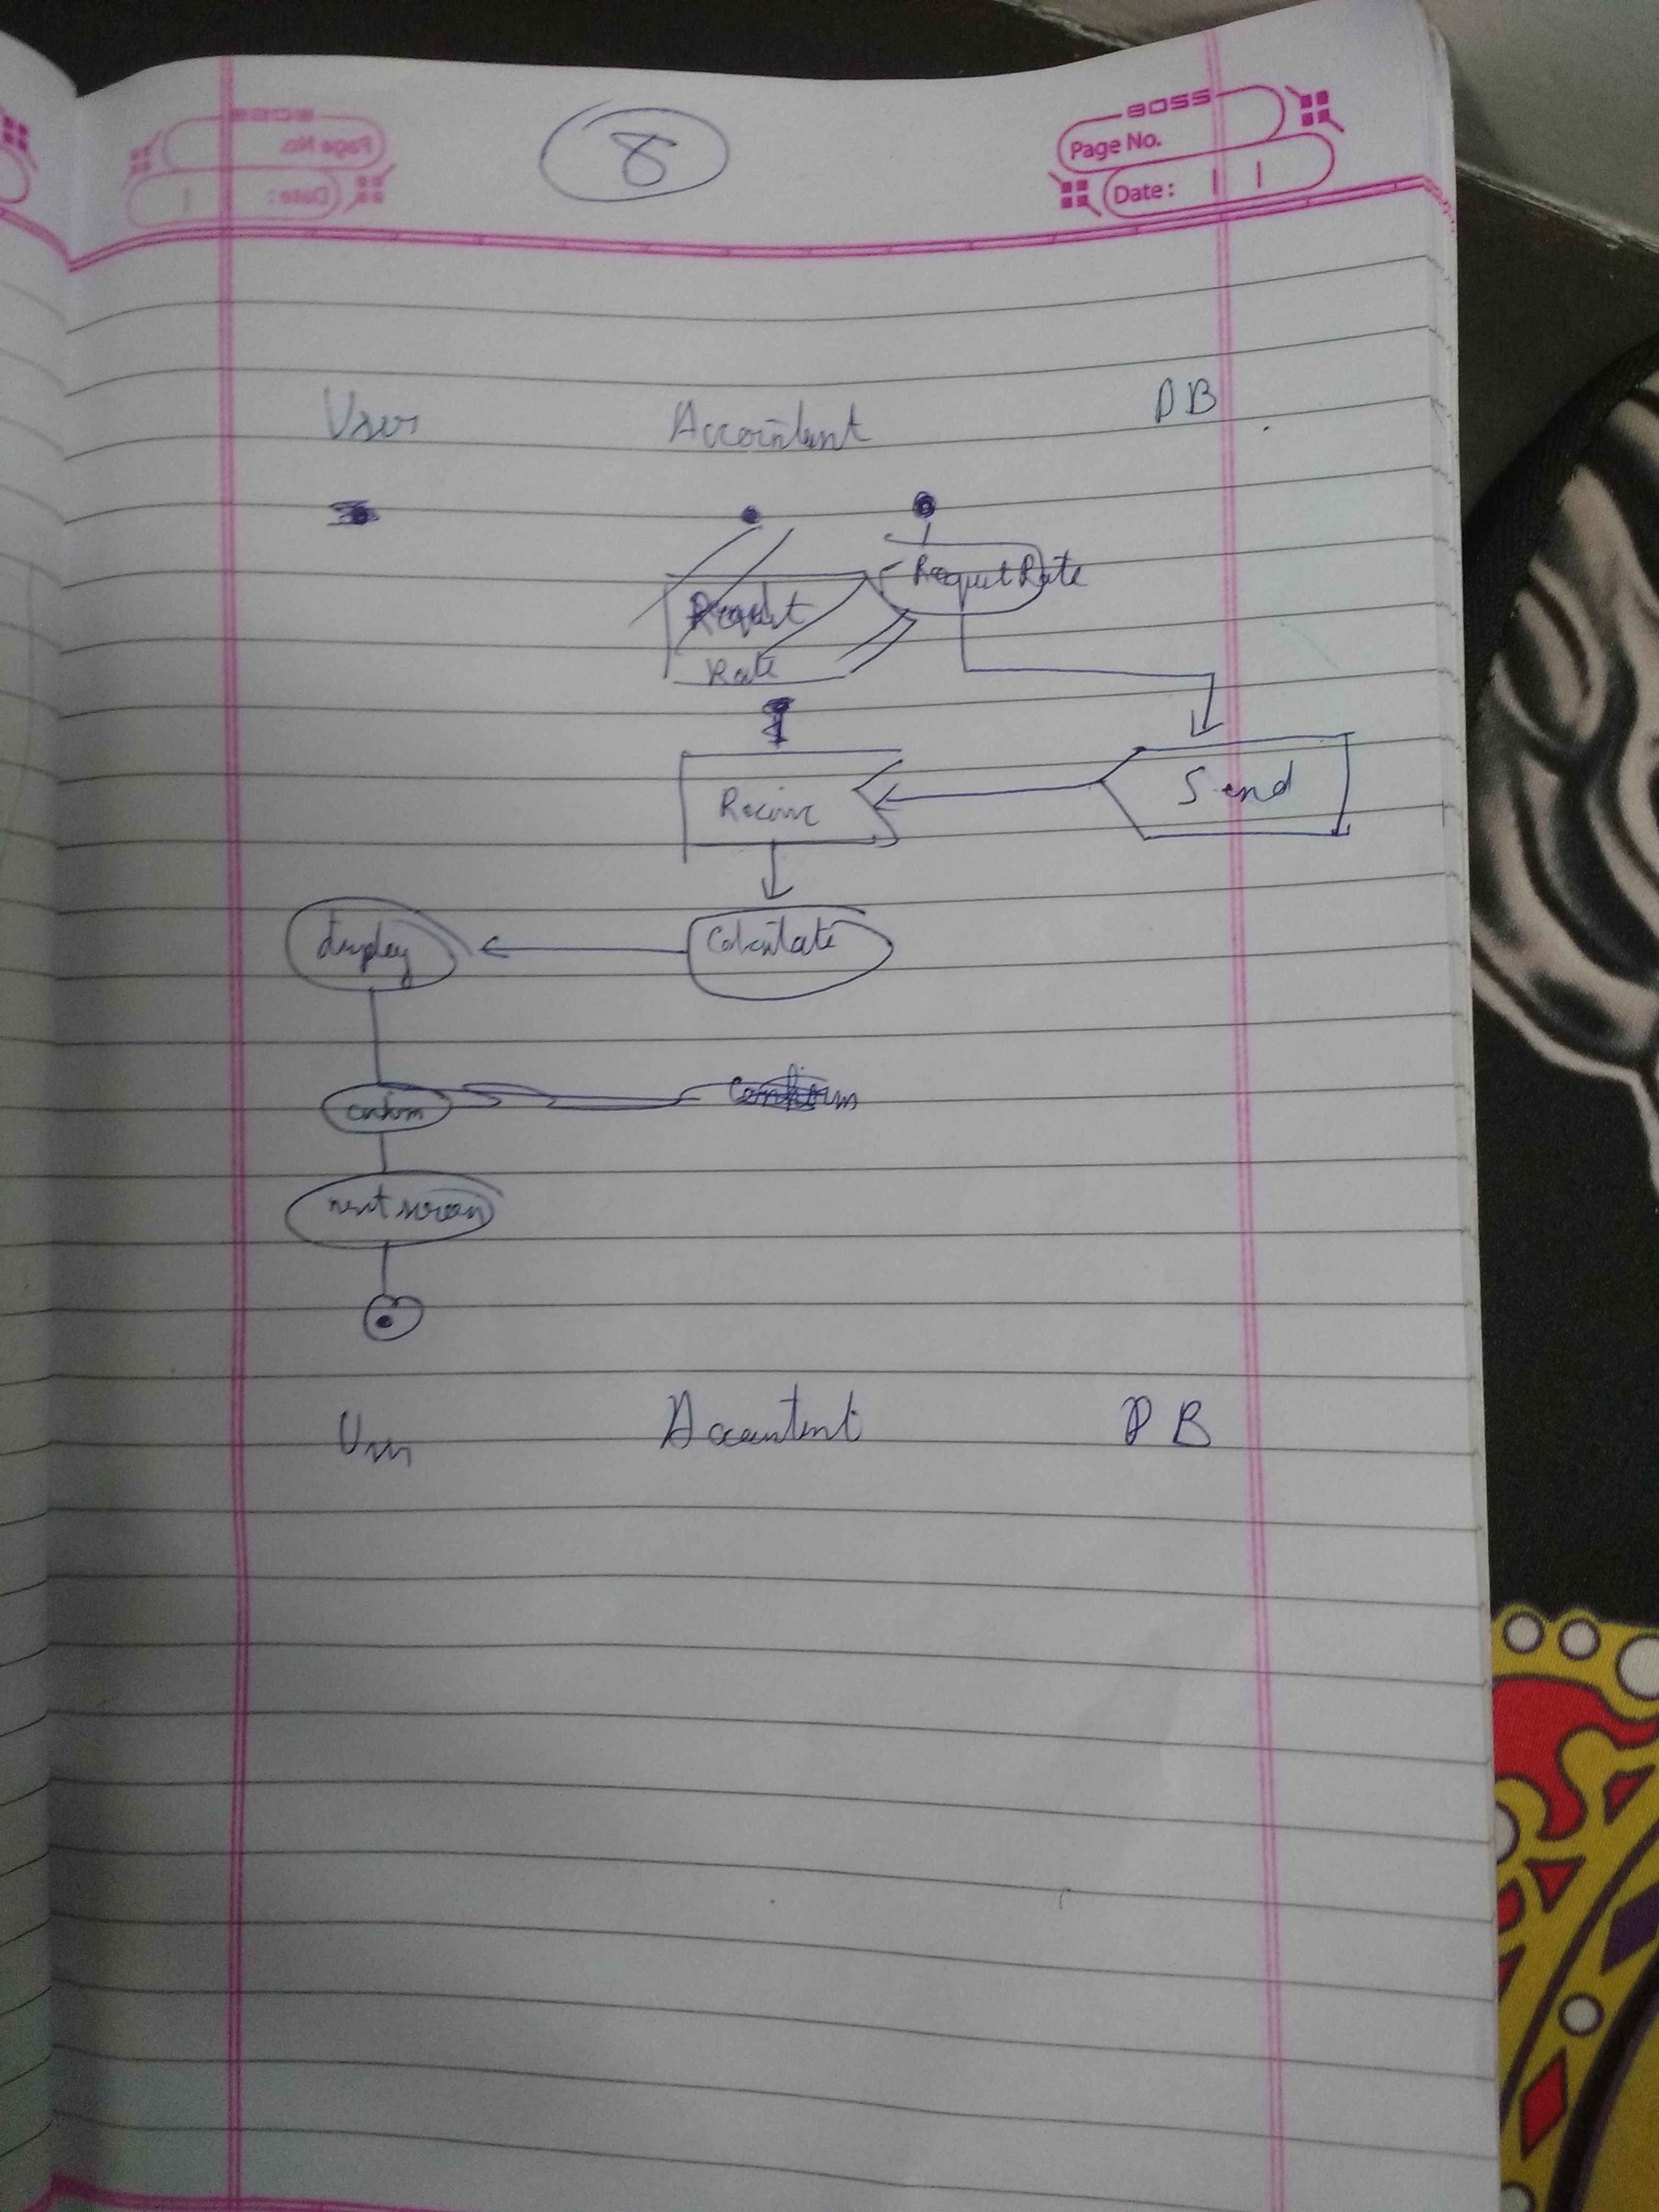 BOSS
Page No.
Date:
8
User Accointent DB
Request Rate
Request
Rate
Recive Send
display Calculate
confirm Confirm
next screen
User Accountent DB